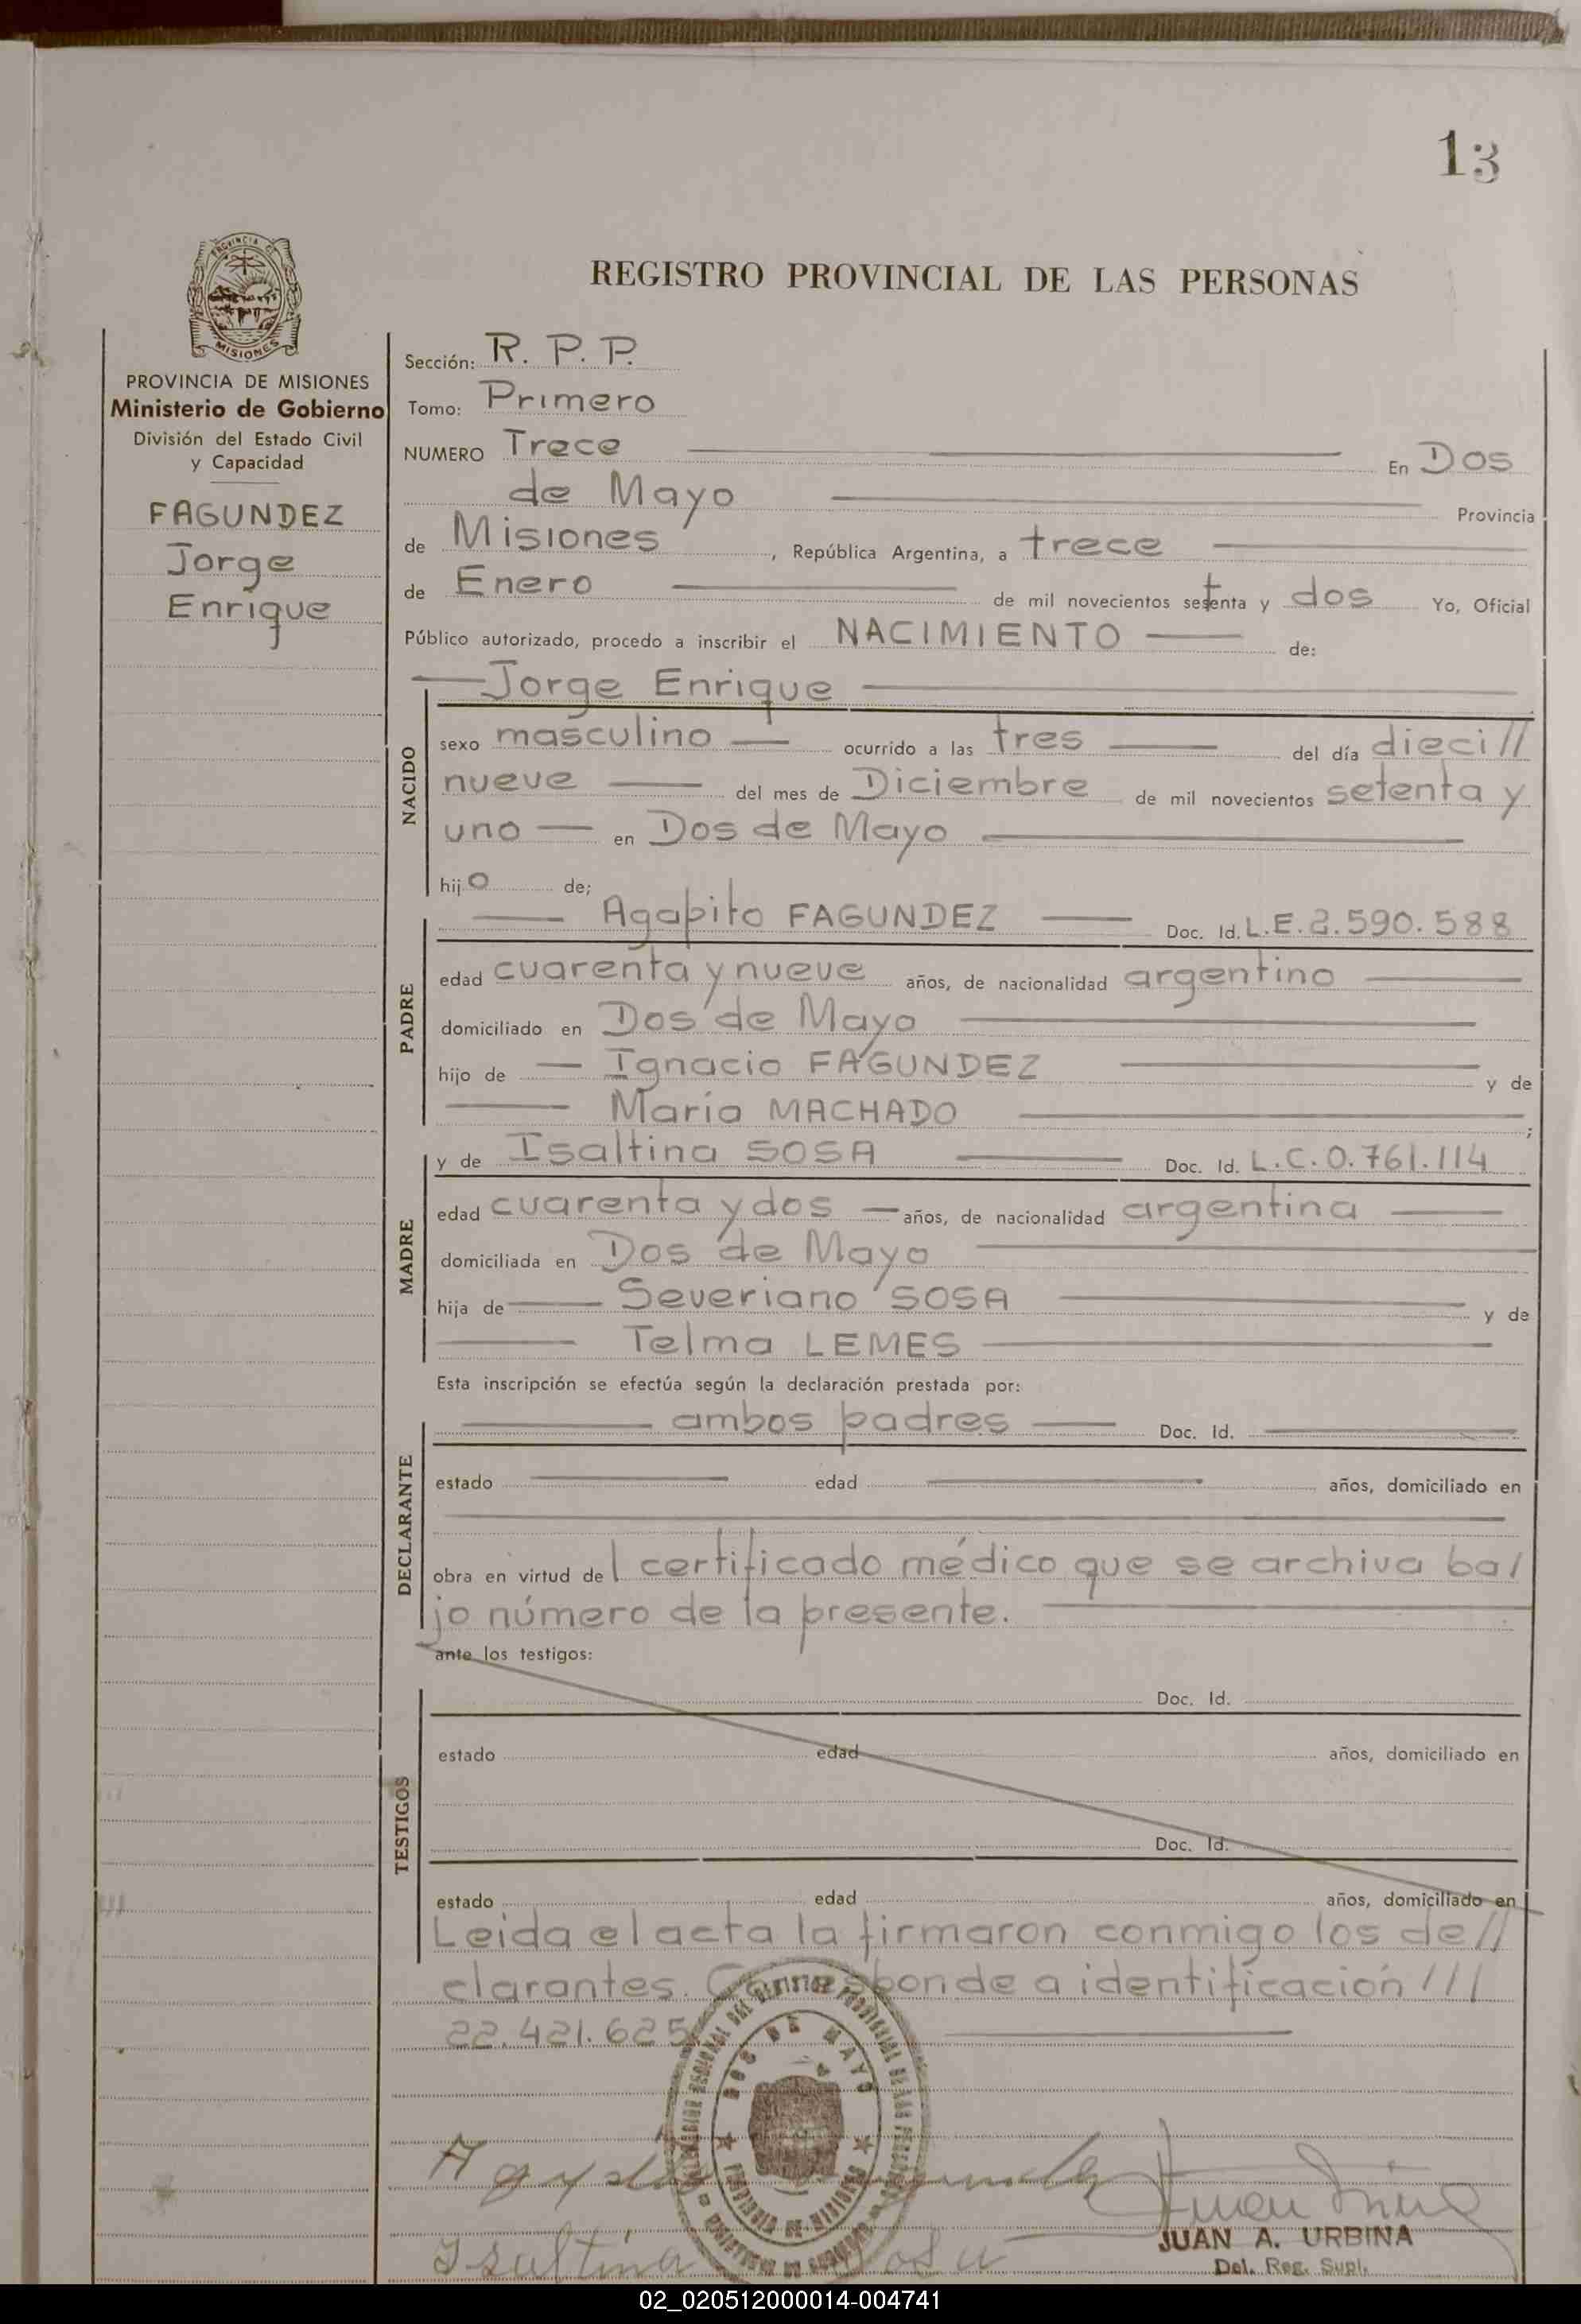 13
PROVINCIA DE
MISIONES
REGISTRO PROVINCIAL DE LAS PERSONAS
PROVINCIA DE MISIONES
Ministerio de Gobierno
División del Estado Civil
y Capacidad
FAGUNDEZ
Jorge
Enrique
Sección: R. P. P.
Tomo: Primero
NUMERO Trece En Dos
de Mayo Provincia
de Misiones, República Argentina, a trece
de Enero de mil novecientos setenta y dos Yo, Oficial
Público autorizado, procedo a inscribir el NACIMIENTO de:
Jorge Enrique
NACIDO
sexo masculino ocurrido a las tres del día dieci//
nueve del mes de Diciembre de mil novecientos setenta y
uno en Dos de Mayo
hijo de;
PADRE
Agapito FAGUNDEZ Doc. Id. L.E. 2.590.588
edad cuarenta y nueve años, de nacionalidad argentino
domiciliado en Dos de Mayo
hijo de Ignacio FAGUNDEZ y de
María MACHADO ;
MADRE
y de Isaltina SOSA Doc. Id. L.C. 0.761.114
edad cuarenta y dos años, de nacionalidad argentina
domiciliada en Dos de Mayo
hija de Severiano SOSA y de
Telma LEMES
Esta inscripción se efectúa según la declaración prestada por:
DECLARANTE
ambos padres Doc. Id.
estado edad años, domiciliado en
obra en virtud del certificado médico que se archiva ba/
jo número de la presente.
ante los testigos:
TESTIGOS
Doc. Id.
estado edad años, domiciliado en
Doc. Id.
estado edad años, domiciliado en
Leida el acta la firmaron conmigo los de//
clarantes. Corresponde a identificación ///
22.421.625
DOS DE MAYO
PROVINCIA DE MISIONES
Isaltina Sosa
JUAN A. URBINA
Del. Reg. Supl.
02_020512000014-004741